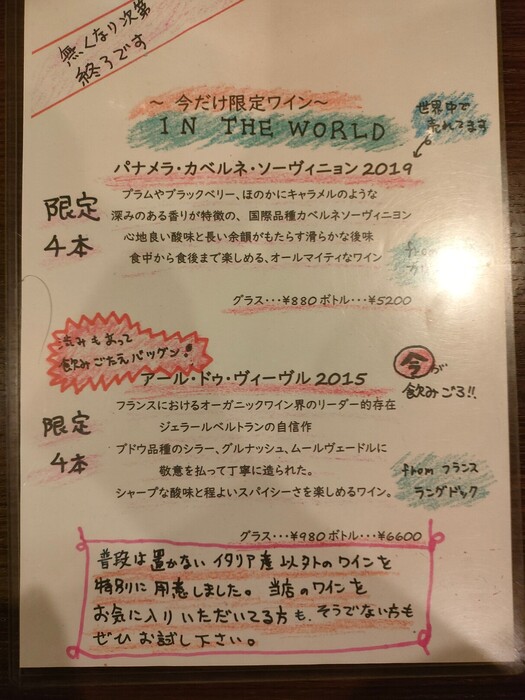 無くなり次第
終了です
～ 今だけ限定ワイン～
IN THE WORLD
世界中で
売れてます
パナメラ・カベルネ・ソーヴィニョン 2019
限定
4本
プラムやブラックベリー、ほのかにキャラメルのような
深みのある香りが特徴の、国際品種カベルネソーヴィニヨン
心地良い酸味と長い余韻がもたらす滑らかな後味
食中から食後まで楽しめる、オールマイティなワイン
from
グラス・・・¥880 ボトル・・・¥5200
深みもあって
飲みごたえバツグン!
アール・ドゥ・ヴィーヴル 2015
今が
飲みごろ!!
限定
4本
フランスにおけるオーガニックワイン界のリーダー的存在
ジェラールベルトランの自信作
ブドウ品種のシラー、グルナッシュ、ムールヴェードルに
敬意を払って丁寧に造られた。
シャープな酸味と程よいスパイシーさを楽しめるワイン。
from フランス
ラングドック
グラス・・・¥980 ボトル・・・¥6600
普段は置かないイタリア産以外のワインを
特別に用意しました。当店のワインを
お気に入りいただいてる方も、そうでない方も
ぜひお試し下さい。